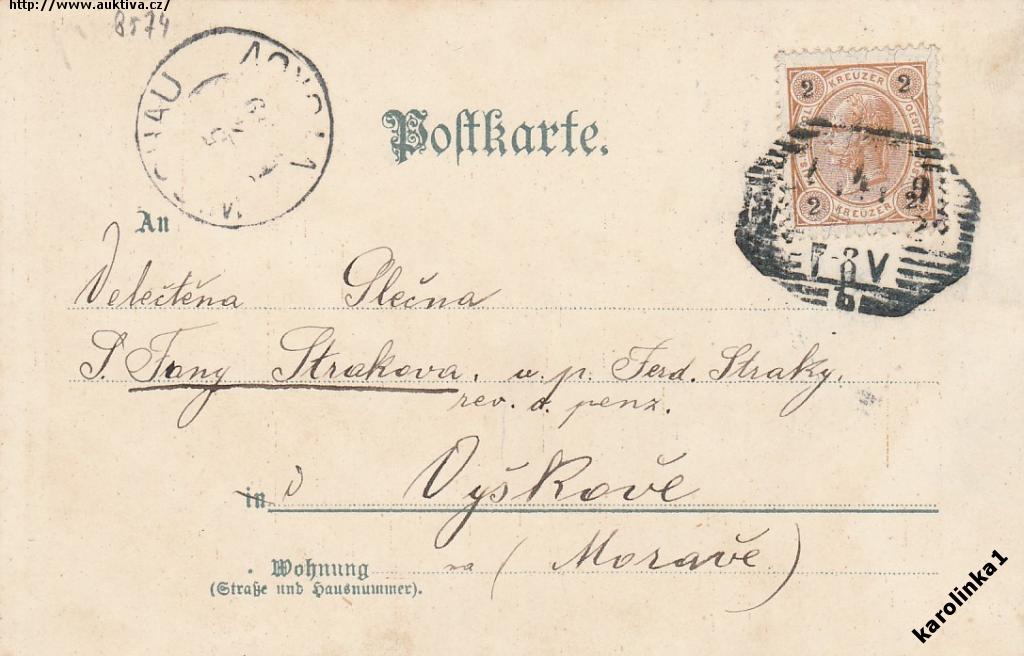 http://www.auktiva.cz/
8574
Postkarte.
2 KREUZER 2
2 KREUZER 2
7-8 V
An
Velectěna Slečna
S. Fany Strakova, u. p. Ferd. Straky,
rev. d. penz.
in
Vyškově
na (Moravě)
Wohnung
(Straße und Hausnummer).
karolinka1